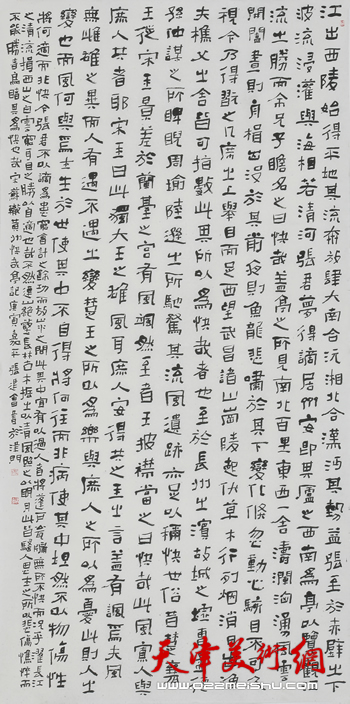 江出西陵始得平地其流奔放肆大南合沅湘北合漢沔其勢益張至於赤壁之下
波流浸灌與海相若清河張君夢得謫居齊安即其廬之西南為亭以覽觀江
流之勝而余兄子瞻名之曰快哉蓋亭之所見南北百里東西一舍濤瀾洶湧風雲
開闔晝則舟楫出沒於其前夜則魚龍悲嘯於其下變化倏忽動心駭目不可久
視今乃得翫之几席之上舉目而足西望武昌諸山岡陵起伏草木行列煙消日出漁
夫樵父之舍皆可指數此其所以為快哉者也至於長州之濱故城之墟曹孟德
孫仲謀之所睥睨周瑜陸遜之所馳騖其流風遺跡亦足以稱快世俗昔楚襄
王從宋玉景差於蘭臺之宮有風颯然至者王披襟當之曰快哉此風寡人與
庶人共者耶宋玉曰此獨大王之雄風耳庶人安得共之玉之言蓋有諷焉夫風
無雌雄之異而人有遇不遇之變楚王之所以為樂與庶人之所以為憂此則人之
變也而風何與焉士生於世使其中不自得將何往而非病使其中坦然不以物傷性
將何適而非快今張君不以謫為患竊會計之餘功而放山水之間此其中宜有以過人者將蓬戶甕牖無所不快而況乎濯長江
之清流揖西山之白雲窮耳目之勝以自適也哉不然連山絕壑長林古木振之以清風照之以明月此皆騷人思士之所以悲傷憔悴而
不能勝者烏睹其為快也哉宋蘇轍黃州快哉亭記庚寅嘉平張建會書於津門
天津美術網
www.022meishu.com